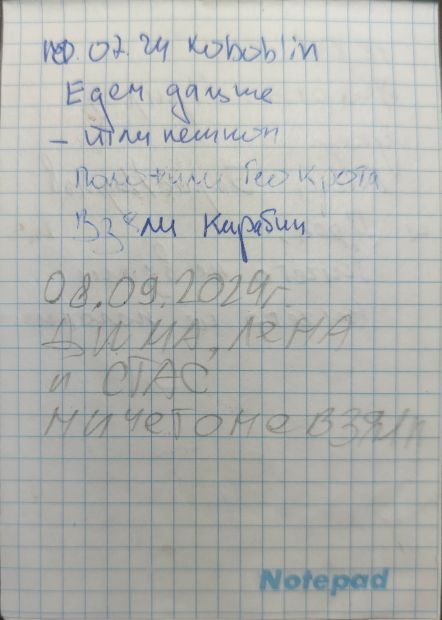 20.07.24 Koboblin
Едем дальше
- шли пешком
Положили Гео Крота
Взяли Карабин
08.09.2024г.
ДИМА, ЛЕНА
и СТАС
НИЧЕГО НЕ ВЗЯЛИ
Notepad